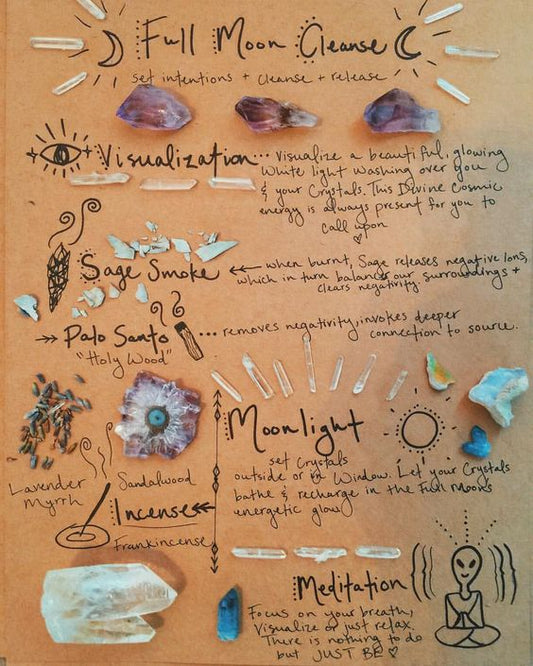 Full Moon Cleanse
set intentions + cleanse + release
Visualization... visualize a beautiful, glowing
white light washing over you
& your Crystals. This Divine Cosmic
energy is always present for you to
call upon
Sage Smoke ← when burnt, Sage releases negative Ions,
which in turn balances our surroundings +
clears negativity.
Palo Santo ... removes negativity, invokes deeper
connection to source.
"Holy Wood"
Moonlight
set Crystals
outside or in Window. Let your Crystals
bathe & recharge in the Full Moons
energetic glow
Lavender
Myrrh
Sandalwood
Incense
Frankincense
Meditation
Focus on your breath,
Visualize or just relax.
There is nothing to do
but JUST BE ♡